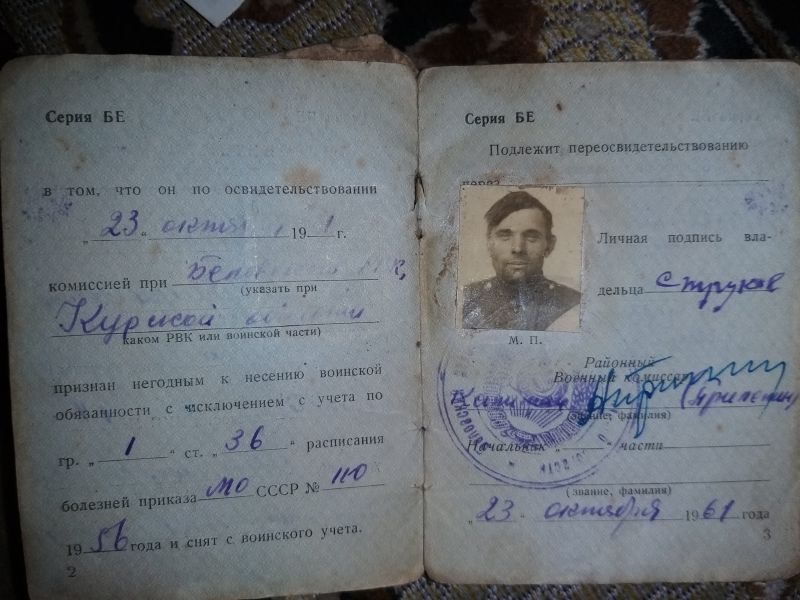 Серия БЕ
в том, что он по освидетельствовании
„ 23 “ октя 19 1 г.
комиссией при
(указать при
Курской
каком РВК или воинской части)
признан негодным к несению воинской
обязанности с исключением с учета по
гр. „ 1 “ ст. „ 36 “ расписания
болезней приказа МО СССР № 110
19 56 года и снят с воинского учета.
2
Серия БЕ
Подлежит переосвидетельствованию
через
Личная подпись вла-
дельца Струков
М. П.
Районный
Военный комиссар
(звание, фамилия)
Начальник части
(звание, фамилия)
„ 23 “ октября 1961 года
3